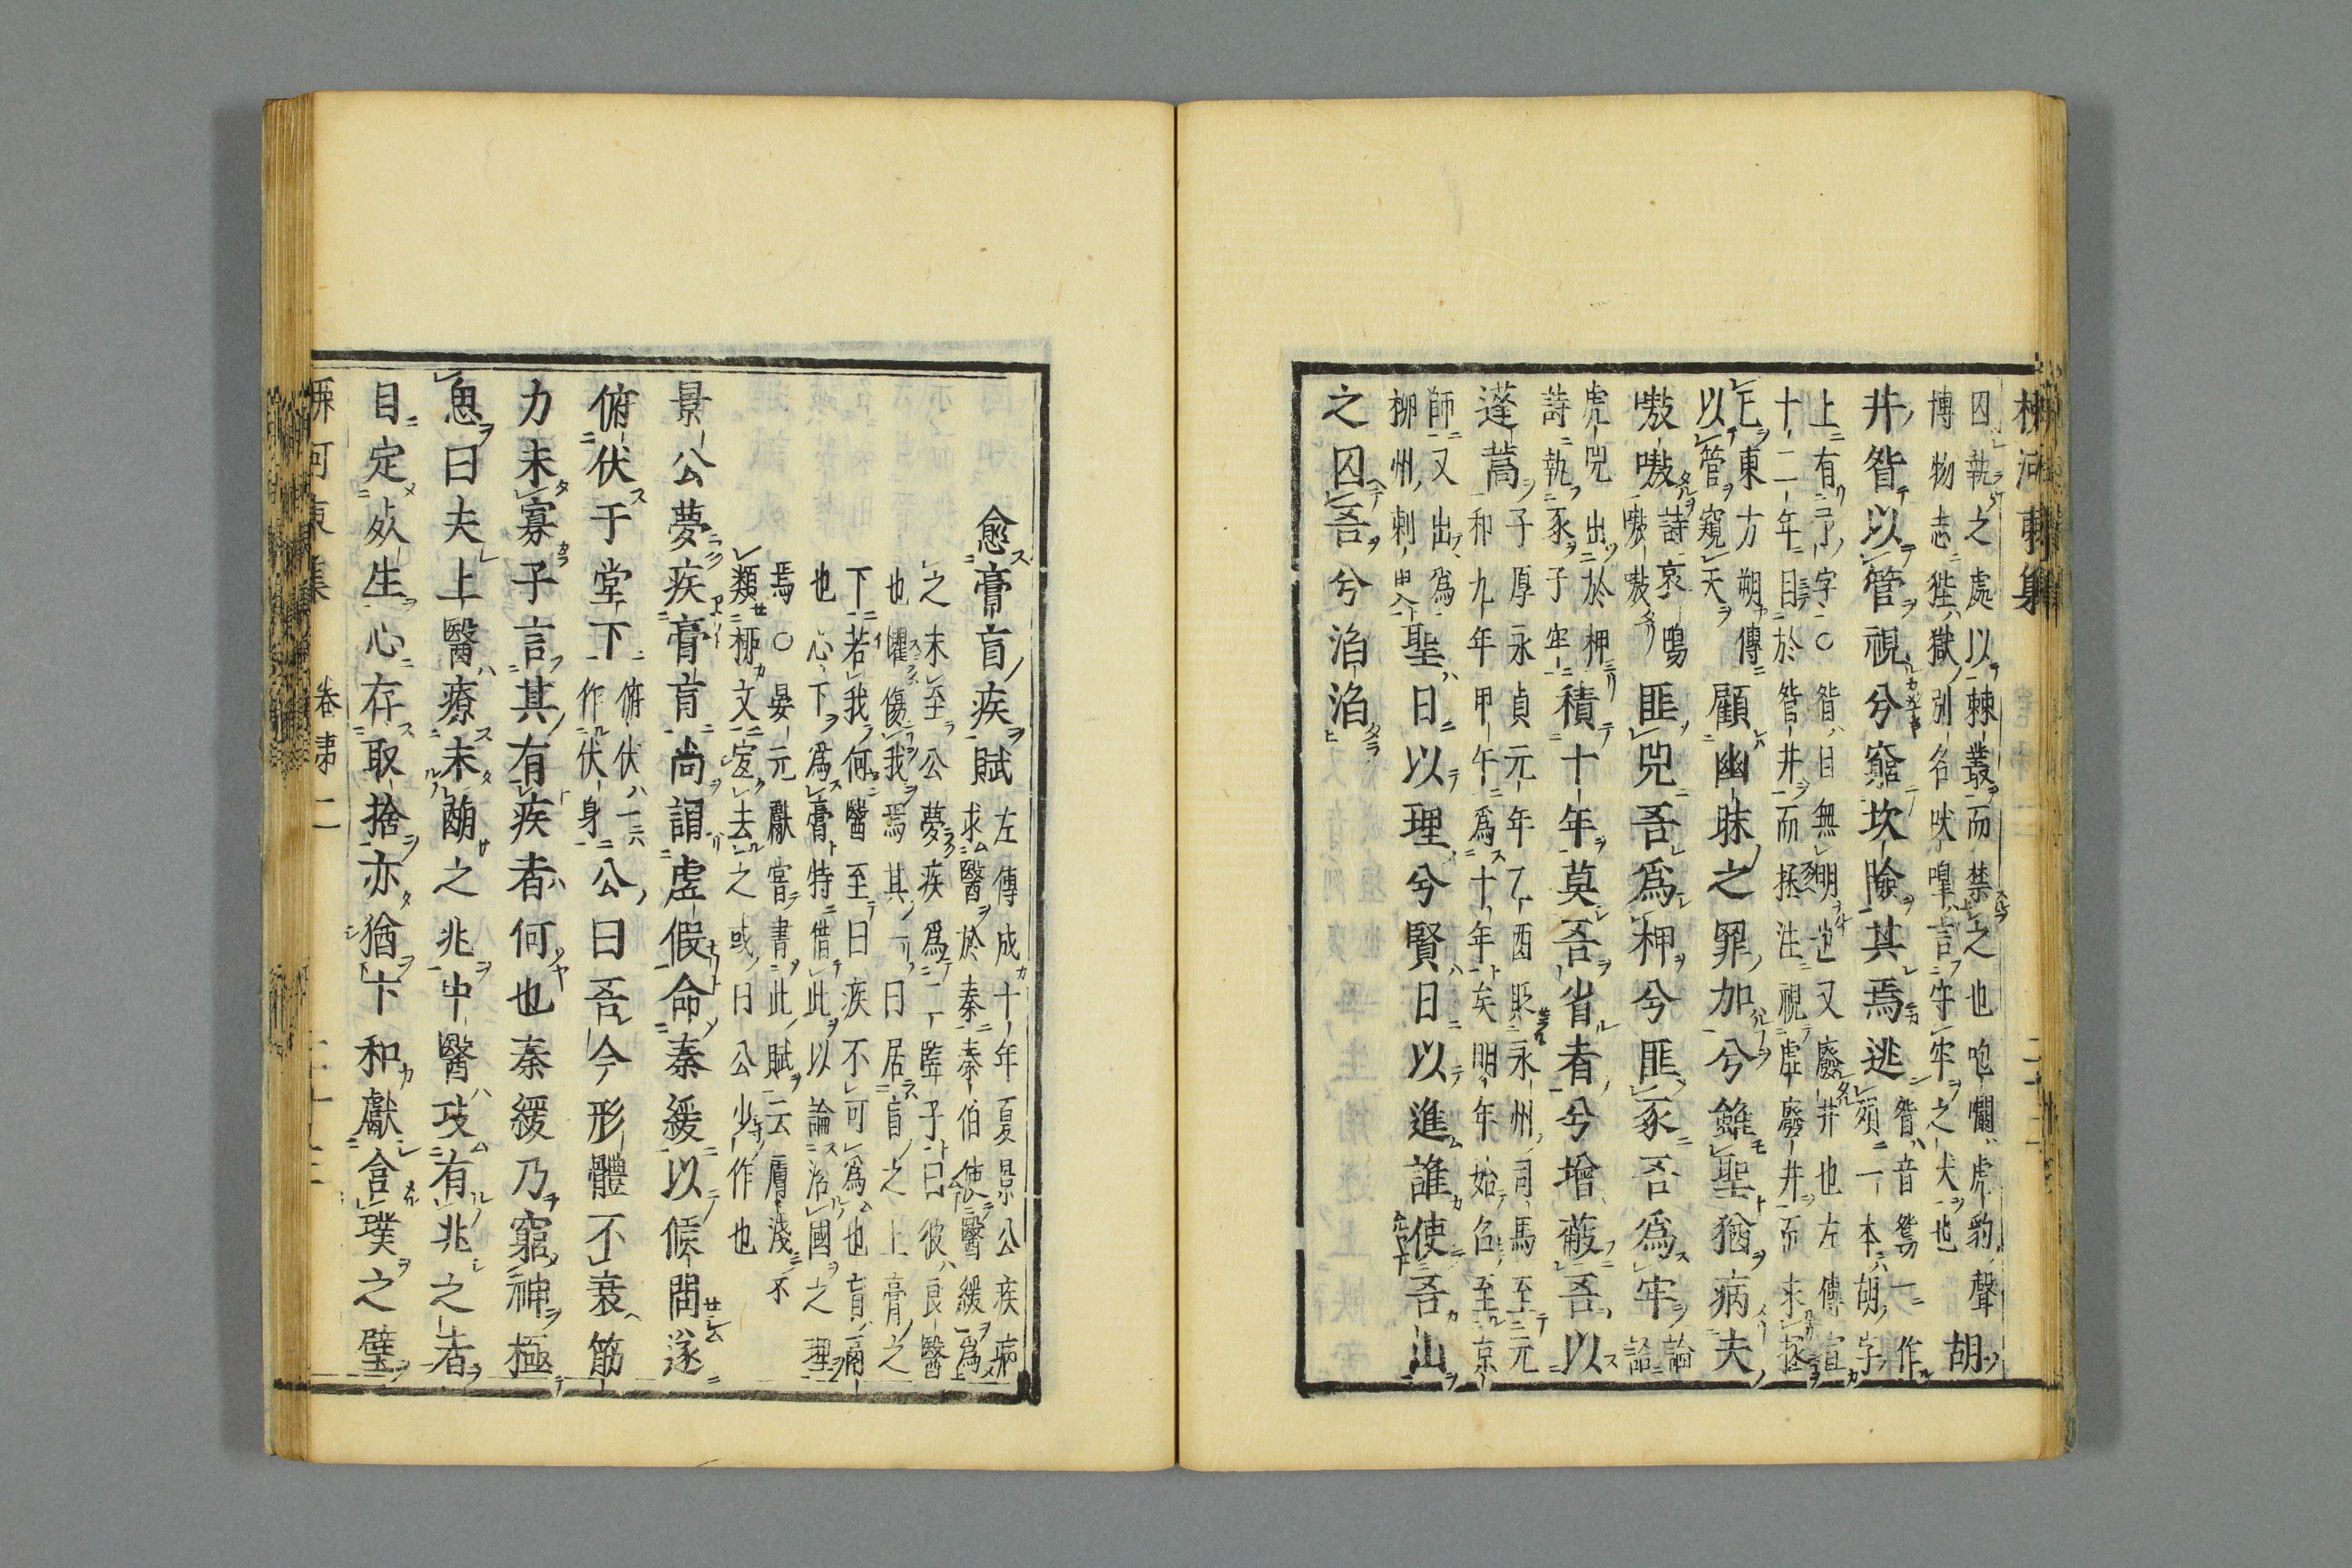 柳河東集
囚執之處以棘叢而禁之也咆㘚虎豹聲
博物志狴獄別名吠嘷言守牢之犬也
胡
井眢以管視兮窮坎險其焉逃
眢音鴛一作
須一本胡字
上有了字○眢目無明也又廢井也左傳宣
十二年目於眢井而拯注視虛廢井而求拯
也東方朔傳
以管窺天
顧幽昧之罪加兮雖聖猶病夫
嗷嗷
詩哀鳴
嗷嗷
匪兕吾爲柙兮匪豕吾爲牢
論
語
虎兕出於柙
詩執豕于牢
積十年莫吾省者兮增蔽吾以
蓬蒿
子厚永貞元年乙酉貶永州司馬至元
和九年甲午爲十年矣明年始召至京
師又出爲
柳州刺史
聖日以理兮賢日以進誰使吾山
之囚吾兮滔滔
愈膏肓疾賦
左傳成十年夏景公疾病
求醫於秦秦伯使醫緩爲
之未至公夢疾爲二豎子曰彼良醫
也懼傷我焉其一曰居肓之上膏之
下若我何醫至曰疾不可爲也肓鬲
也心下爲膏特借此以論治國之理
焉○晏元獻嘗書此賦云膚淺不
類柳文宜去之或曰公少作也
景公夢疾膏肓尚謂虛假命秦緩以候問遂
俯伏于堂下
俯伏一云
作伏身
公曰吾今形體不衰筋
力未寡子言其有疾者何也秦緩乃窮神極
思曰夫上醫療未萌之兆中醫攻有兆之者
目定死生心存取捨亦猶卞和獻含璞之璧
柳河東集 卷第二 二十三